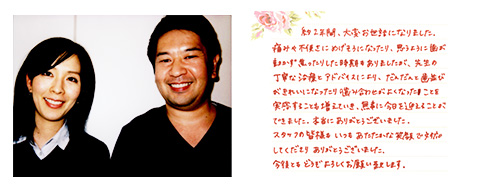 約2年間、大変お世話になりました。
痛みや不便さにめげそうになったり、思うように歯が
動かず焦ったりした時期もありましたが、先生の
丁寧な治療とアドバイスにより、だんだんと歯並び
がきれいになったり噛み合わせがよくなったことを
実感することも増えていき、無事に今日を迎えることが
できました。本当にありがとうございました。
スタッフの皆様も いつもあたたかな笑顔で対応
してくださり ありがとうございました。
今後とも どうぞよろしくお願い致します。